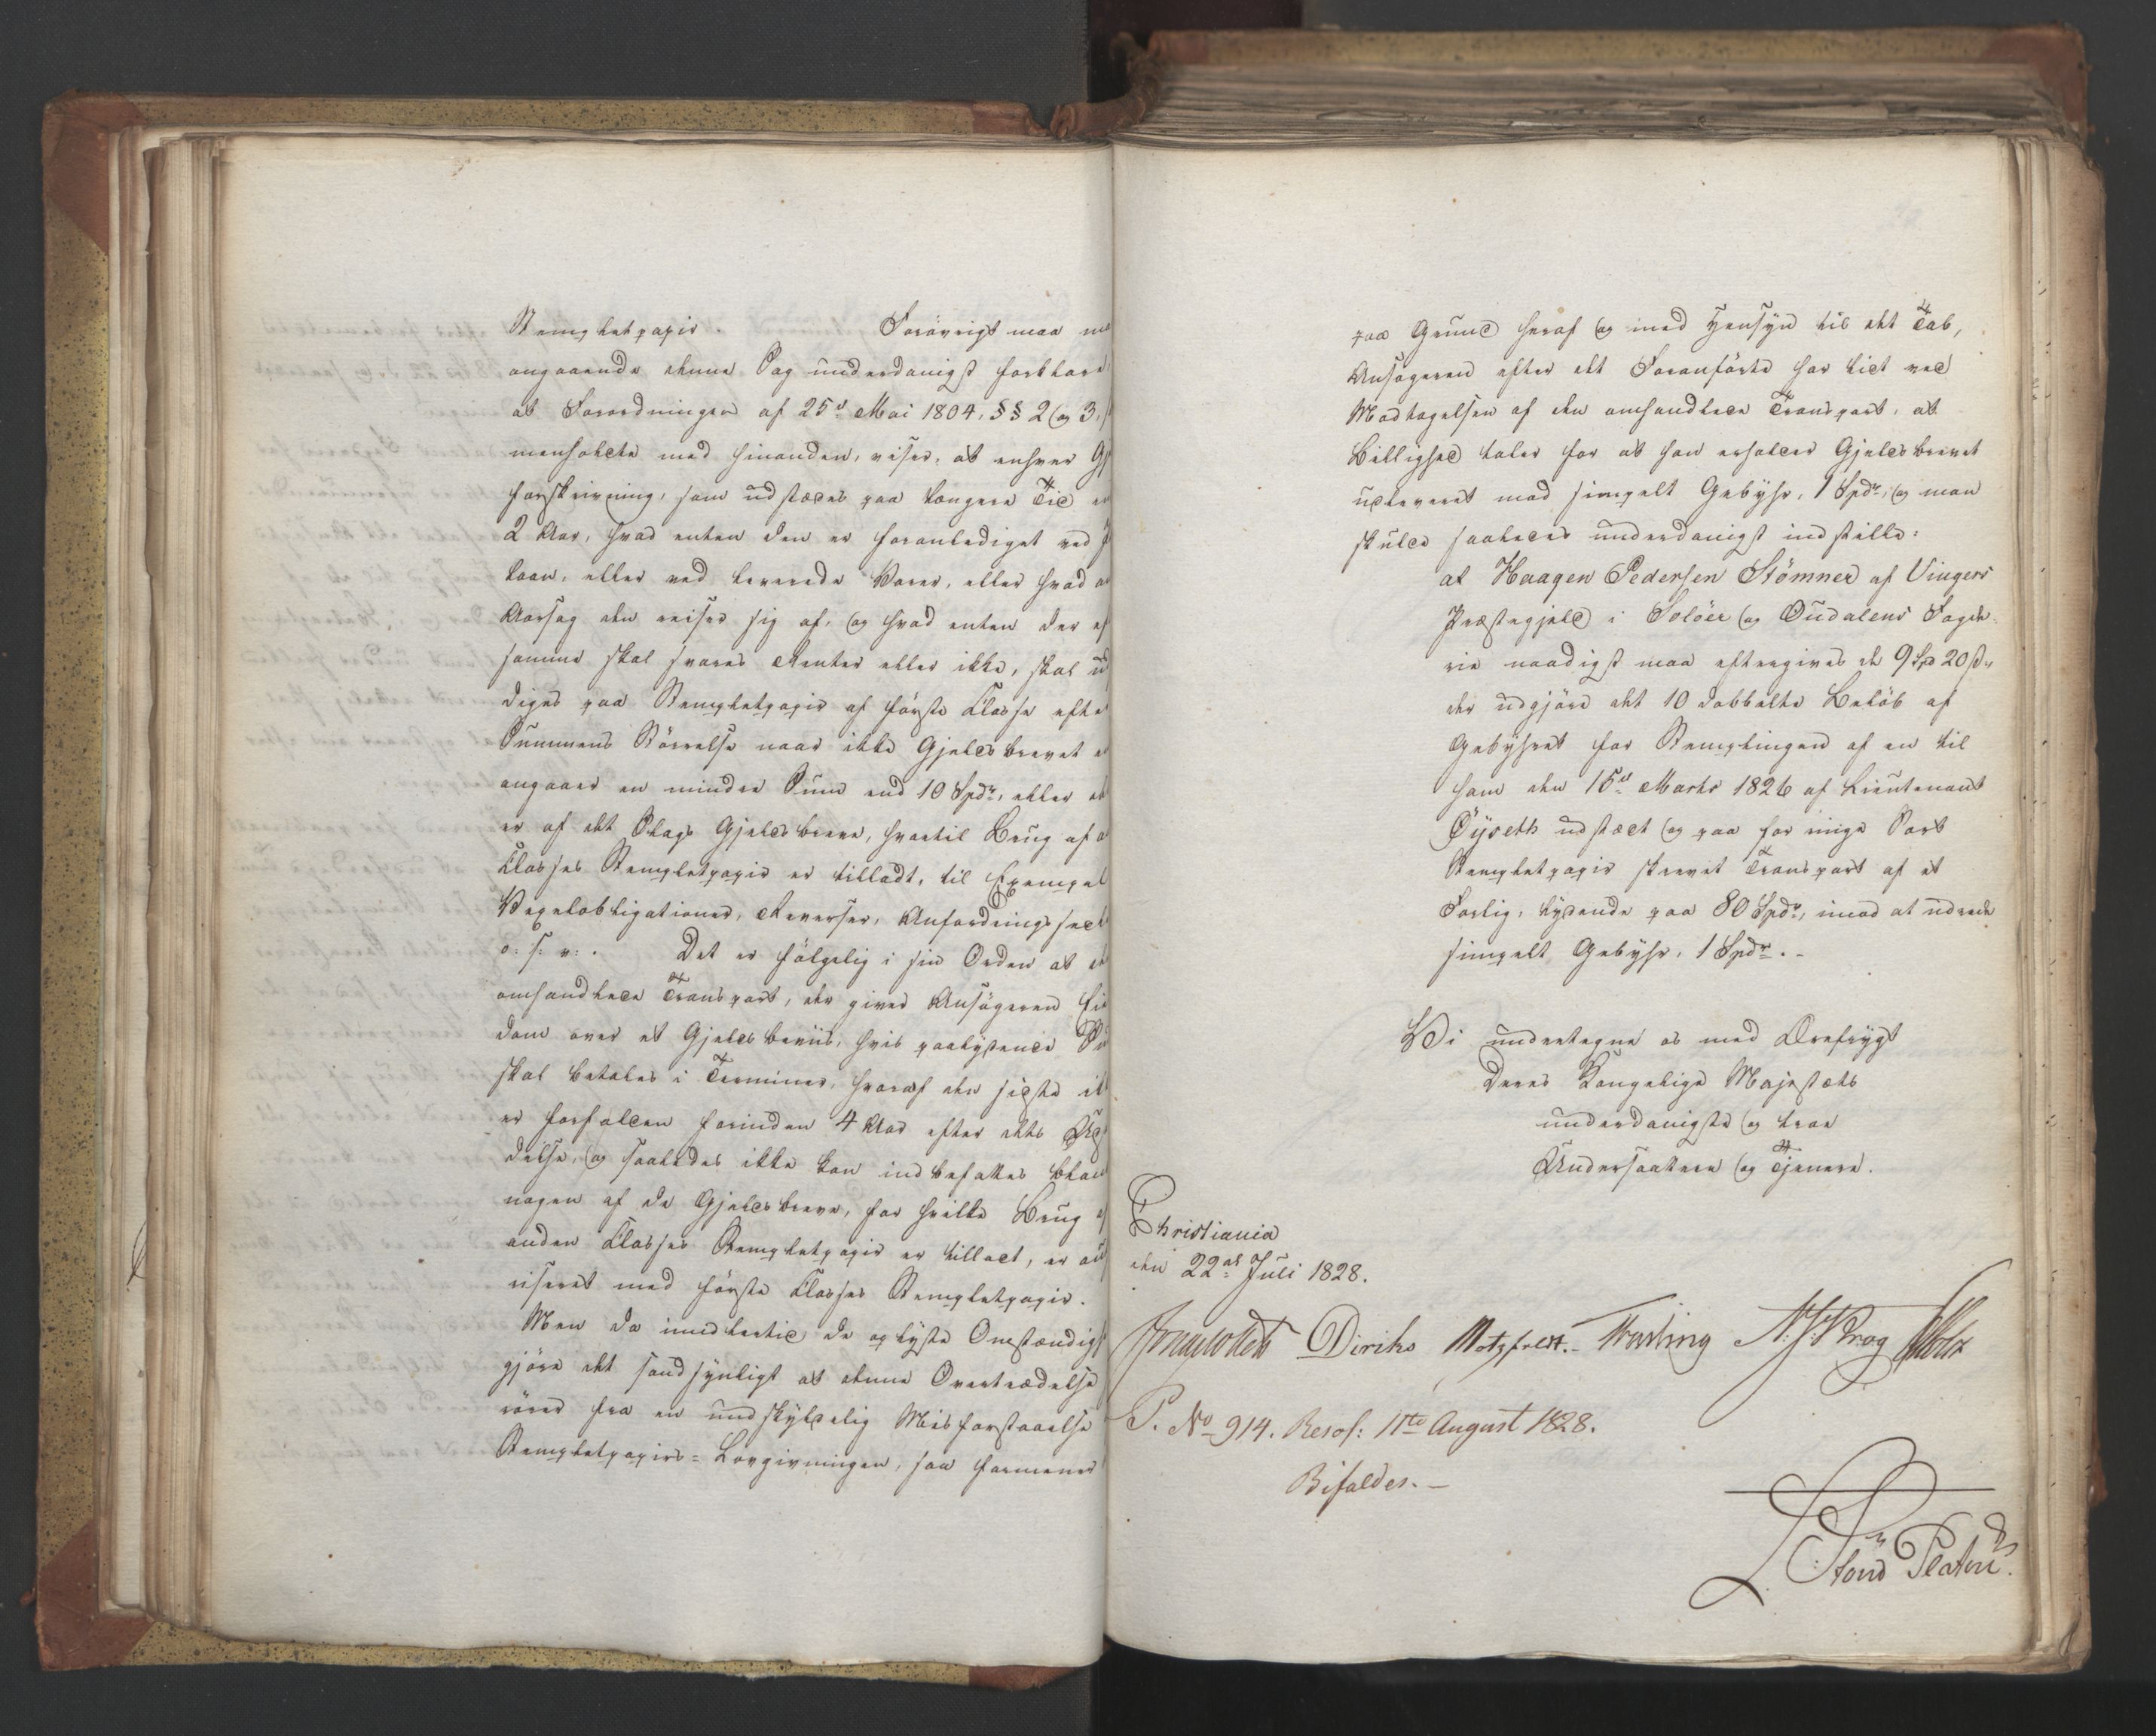 Stempletpapir. Forövrigt maa ma
angaaende denne Sag underdanigst forklare,
at Forordningen af 25de Mai 1804, §§ 2 og 3,
menholdte med hinanden, viser, at enhver Gj
forskrivning, som udstædes paa længere Tid en
2 Aar, hvad enten den er foranlediget ved
laan, eller ved leverede Varer, eller hvad a
Aarsag den reiser sig af, og hvad enten der af
samme skal svares Renter eller ikke, skal ud
diges paa Stempletpapir af første Classe efte
Summens Störrelse naar ikke Gjeldsbrevet e
angaaer en mindre Sum end 10 Spdr, eller at
er af det Slags Gjeldsbreve, hvortil Brug af a
Classes Stempletpapir er tilladt, til Exempel
Vexelobligationer, Reverser, Anfordringssed
o: s: v: . Det er fölgelig i sin Orden at de
omhandlede Transport, der giver Ansögeren Eie
dom over et Gjeldsbeviis, hvis paalydende Su
skal betales i Terminer, hvoraf den sidste ik
er forfalden forinden 4 Aar efter dets Uds
delse, og saaledes ikke kan indbefattes blan
nogen af de Gjeldsbreve, for hvilke Brug af
anden Classes Stempletpapir er tilladt, er an
viseret med første Classes Stempletpapir.
Men da imidlertid de oplyste Omstændigh
gjöre det sandsynligt at denne Overtrædelse
rörer fra en undskyldelig Misforstaaelse
Stempletpapirs=Lovgivningen, saa formener
paa Grund heraf og med Hensyn til det Tab,
Ansögeren efter det Foranförte har lidt ved
Modtagelsen af den omhandlede Transport, at
Billighed taler for at han erholder Gjeldsbrevet
udleveret mod simpelt Gebyhr, 1 Spdr, og man
skulde saaledes underdanigst indstille:
at Haagen Pedersen Stömner af Vinger
Præstegjeld i Solöer og Oudalens Fogde
rie naadigst maa eftergives de 9 Spd 20 s,
der udgjöre det 10 dobbelte Belöb af
Gebyhret for Stemplingen af en til
ham den 15de Marts 1826 af Lieutenant
Öyseth udstædt og paa for ringe Sort
Stempletpapir skrevet Transport af et
Forlig, lydende paa 80 Spdr, imod at udrede
simpelt Gebyhr, 1 Spdr. -
Vi undertegne os med Ærefrygt
Deres Kongelige Majestæts
underdanigste og troe
Undersaatter og Tjenere.
Christiania
den 22de Juli 1828.
Jonas Collett Diriks Motzfeldt. Fasting N: J: Krog Holst
P. No 914. Resol: 11te August 1828.
Bifaldes. -